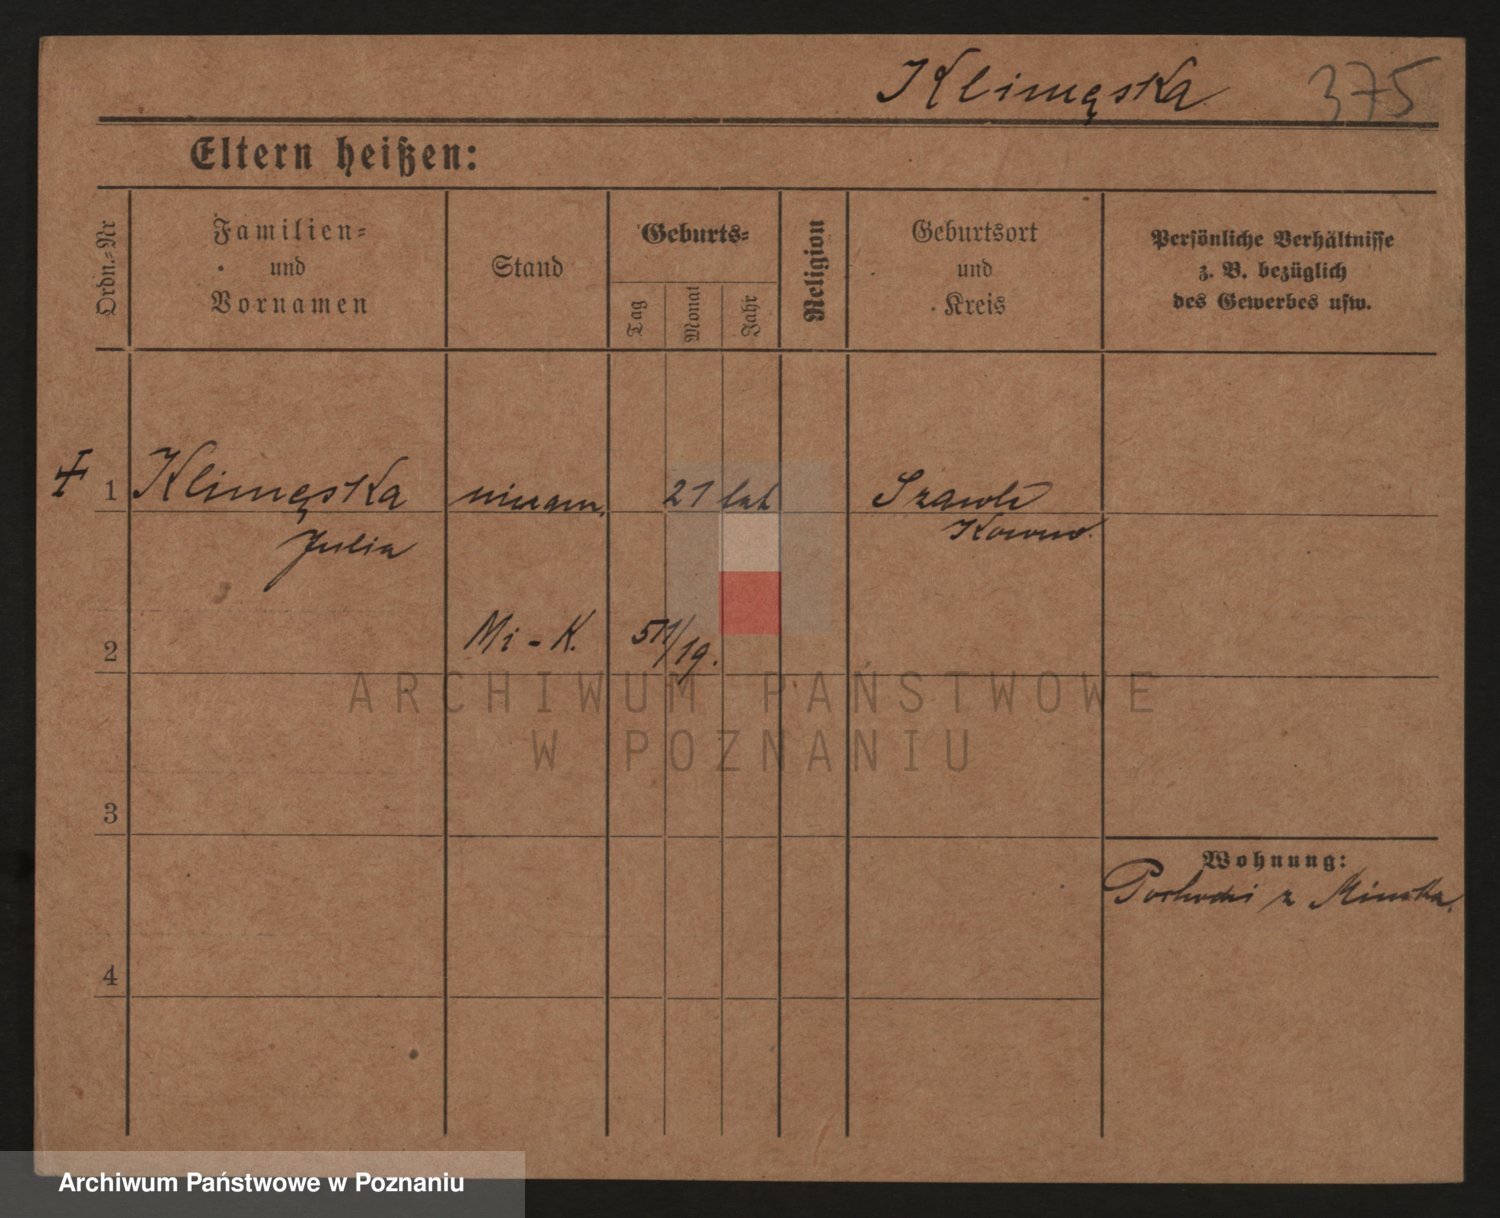 Klimęska 375
Eltern heißen:
Ordn.-Nr
Familien=
und
Vornamen
Stand
Geburts=
Tag
Monat
Jahr
Religion
Geburtsort
und
Kreis
Persönliche Verhältnisse
z. B. bezüglich
des Gewerbes usw.
1 Klimęska niezam. 21 lat Szawle
Julia Kowno.
2 Mi - K. 511/19.
3
4
Wohnung:
Pochodzi z Mińska.
ARCHIWUM PAŃSTWOWE
W POZNANIU
Archiwum Państwowe w Poznaniu